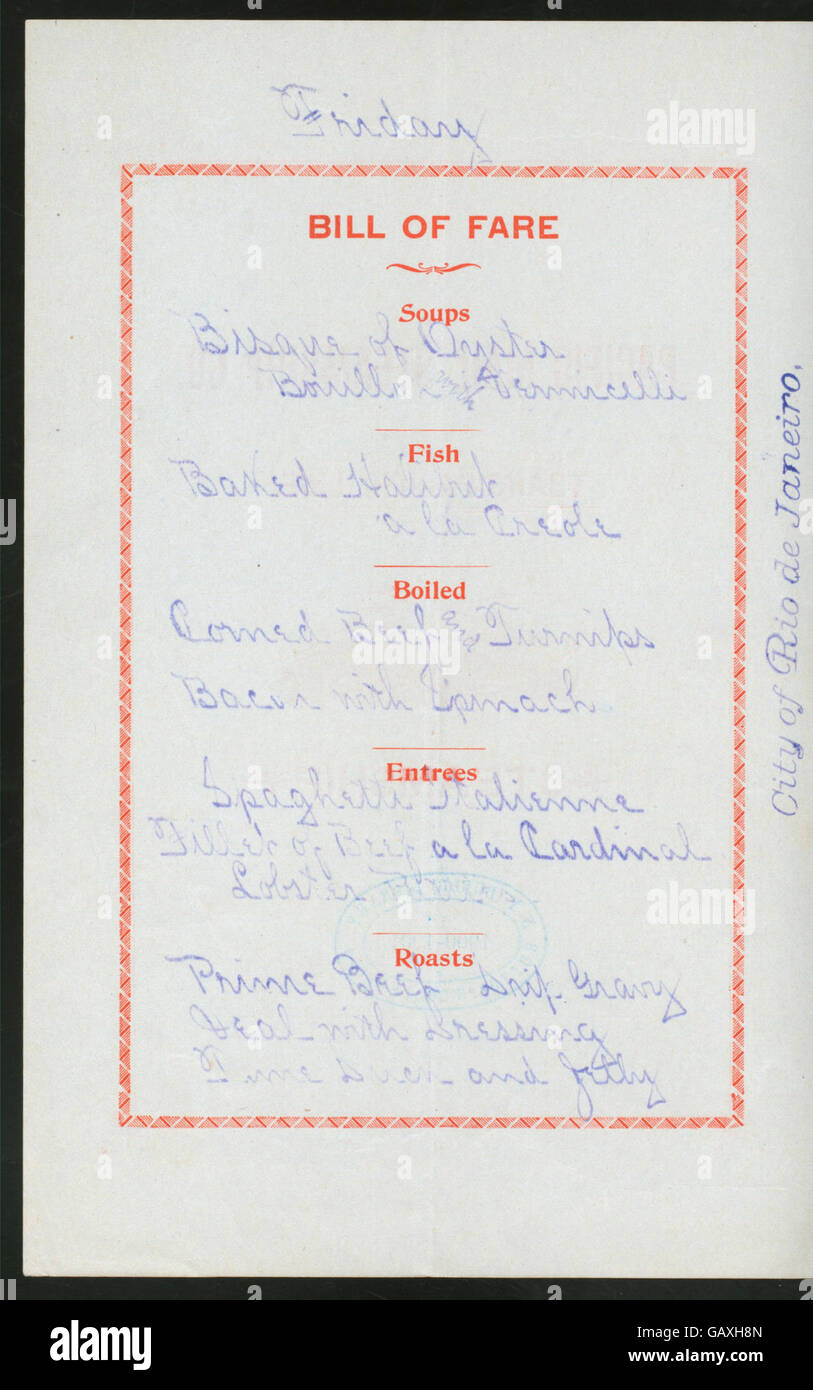 Friday
BILL OF FARE
Soups
Bisque of Oyster
Bouillon with Vermicelli
Fish
Baked Halibut
a la Creole
Boiled
Corned Beef and Turnips
Bacon with Spinach
Entrees
Spaghetti Italienne
Fillet of Beef a la Cardinal
Lobster
Roasts
Prime Beef Drip Gravy
Veal with Dressing
Tame Duck and Jelly
City of Rio de Janeiro.
alamy
alamy
Image ID: GAXH8N
www.alamy.com